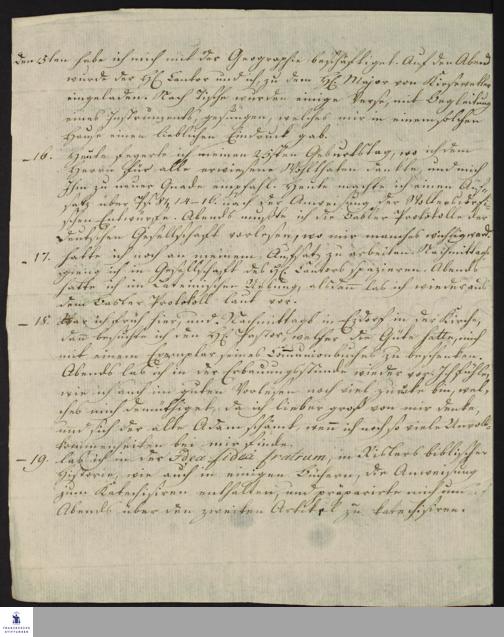 den 5ten habe ich mich mit der Geographie beschäftiget. Auf den Abend
wurde der H. Cantor und ich, zu dem H. Major von Kiesewetter
eingeladen. Nach Tische wurden einige Verse, mit Begleitung
eines Instruments, gesungen, welches mir in einem solchen
Hause einen lieblichen Eindruck gab.
– 16. Heute feyerte ich meinen 25sten Geburtstag, wo ich dem
Herrn für alle erwiesene Wohlthaten dankte, und mich
Ihm zu neuer Gnade empfahl. Heute machte ich einen Auf-
satz über 14–16. nach der Anweisung der
schen Entwürfe. Abends mußte ich die Basler Protokolle der
deutschen Gesellschaft vorlesen, wo mir manches
– 17. hatte ich noch an meinem Aufsatz zu arbeiten. Nachmittags
gieng ich in Gesellschaft des H. Cantors spazieren. Abends
hatte ich im Lateinischen Uebung, alsdann las ich wieder aus
dem Basler Protokoll laut vor.
– 18. War ich früh hier, und Nachmittags in in der Kirche,
dann besuchte ich den H. Pastor, welcher die Güte hatte, mich
mit einem Exemplar seines Communionbuches zu beschenken.
Abends las ich in der Erbauungsstunde wieder vor. Ich fühle,
wie ich auch im guten Vorlesen noch viel zurük bin, wel-
ches mich demüthiget, da ich lieber groß von mir denke,
und sich der alte Adam schämt, wenn ich noch so viel Unvoll-
kommenheiten bei mir finde.
– 19. las ich in der Idea fidei fratrum, in Rislers biblischer
Historie, wie auch in einigen Büchern, die Anweisung
zum Katechisiren enthalten, und präparirte mich um
Abends über den zweiten Artikel zu katechisiren.
FRANCKESCHE
STIFTUNGEN